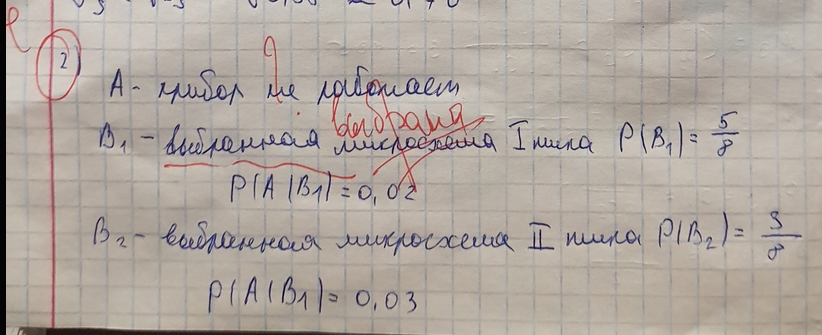 2)
А - прибор не работает
?
выбрана
B₁ - выбранная микросхема I типа P(B₁) = 5/8
P(A|B₁) = 0,02
B₂ - выбранная микросхема II типа P(B₂) = 3/8
P(A|B₁) = 0,03